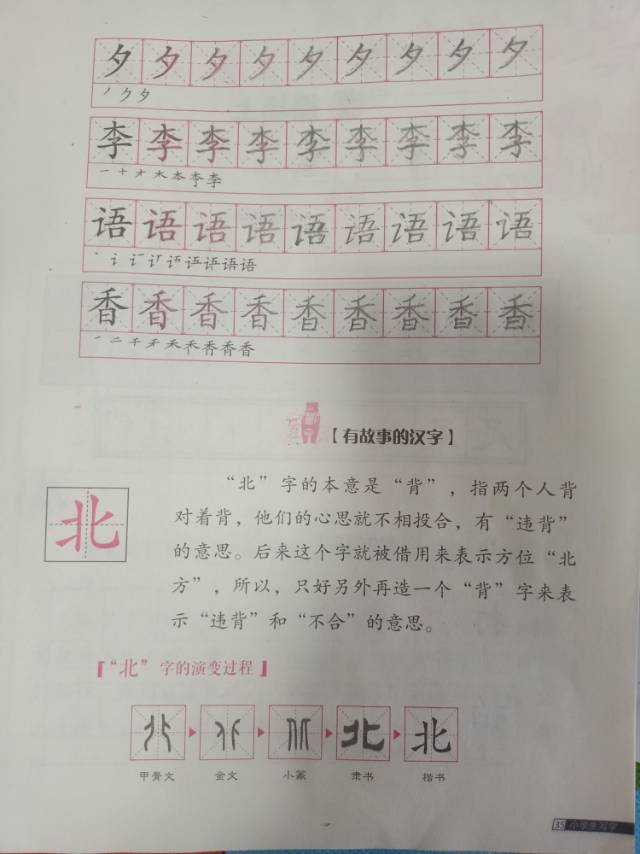 夕夕夕夕夕夕夕夕夕
丿夕夕
李李李李李李李李李
一十才木本李李
语语语语语语语语语
香香香香香香香香香
一二千千禾禾香香香
【有故事的汉字】
北
“北”字的本意是“背”，指两个人背
对着背，他们的心思就不相投合，有“违背”
的意思。后来这个字就被借用来表示方位“北
方”，所以，只好另外再造一个“背”字来表
示“违背”和“不合”的意思。
【“北”字的演变过程】
北
甲骨文 金文 小篆 隶书 楷书
35 小学生写字